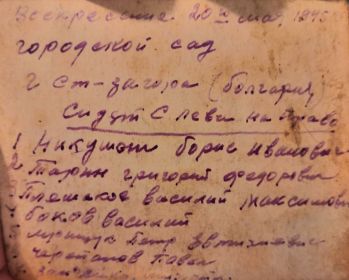 Воскресение 20го мая 1945
городской сад
г ст-загора (болгария)
Сидят с лева на право
1 Никушин борис Иванович
2 Тарин григорий федорович
Плешаков василий максимович
боков василий
Петр Евтихиевич
Черепанов Павел